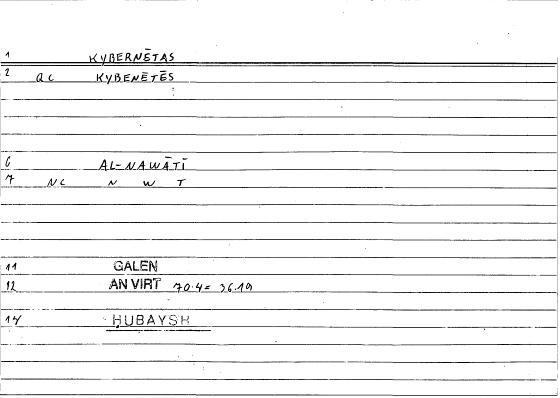 1 KYBERNĒTAS
2 QC KYBENĒTĒS
6 AL-NAWĀTĪ
7 NC N W T
11 GALEN
12 AN VIRT 70.4 = 36.19
14 ḤUBAYSH